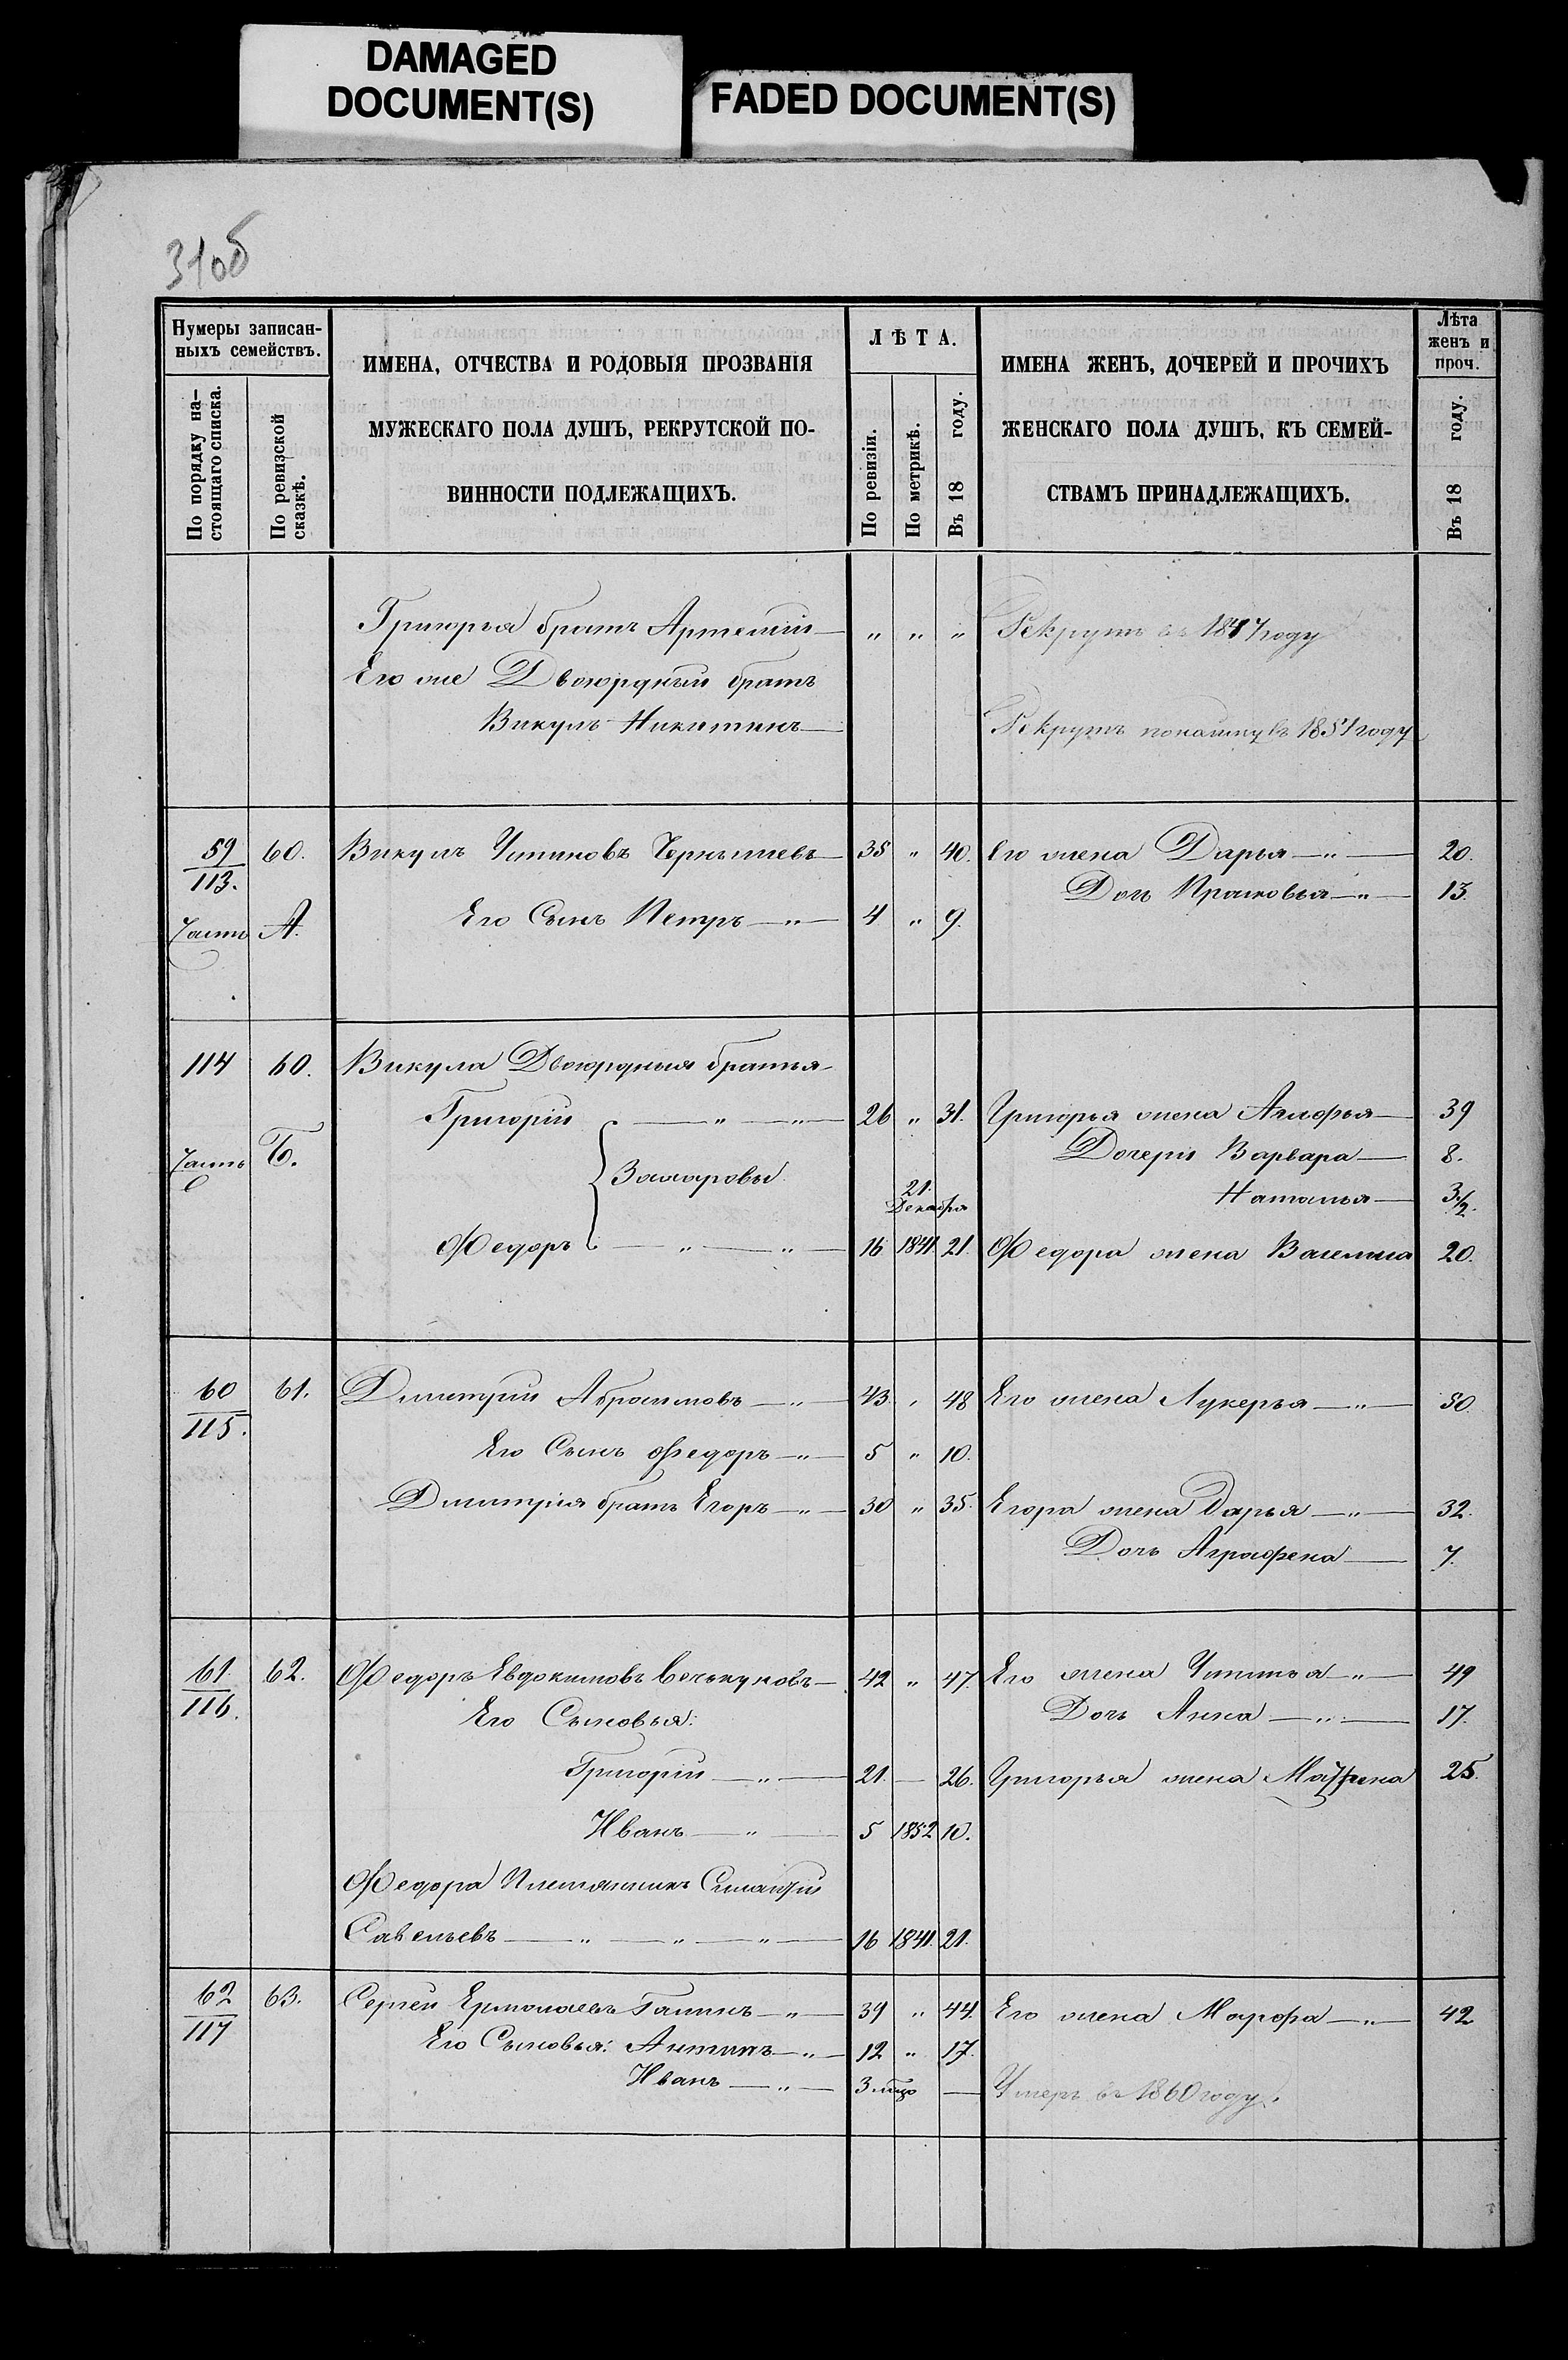 DAMAGED
DOCUMENT(S)
FADED DOCUMENT(S)
31об
Нумеры записан-
ныхъ семействъ.
По порядку на-
стоящаго списка.
По ревизской
сказкѣ.
ИМЕНА, ОТЧЕСТВА И РОДОВЫЯ ПРОЗВАНІЯ
МУЖЕСКАГО ПОЛА ДУШЪ, РЕКРУТСКОЙ ПО-
ВИННОСТИ ПОДЛЕЖАЩИХЪ.
ЛѢТА.
По ревизіи.
По метрикѣ.
Въ 18 году.
ИМЕНА ЖЕНЪ, ДОЧЕРЕЙ И ПРОЧИХЪ
ЖЕНСКАГО ПОЛА ДУШЪ, КЪ СЕМЕЙ-
СТВАМЪ ПРИНАДЛЕЖАЩИХЪ.
Лѣта
женъ и
проч.
Въ 18 году.
Григорья братъ Артемій — „ „ „ Рекрутъ въ 1847 году
Его же Двоюрдный братъ
Викулъ Никитинъ — Рекрутъ въ 1851 году
59/113. 60. Викулъ — 35 „ 40. Его жена Дарья — „ — 20.
Дочь Прасковья — „ — 13.
Часть А. Его Сынъ Петръ — „ — 4 „ 9.
114 60. Викула Двоюрдныя братья
Григорій — „ — „ — 26 „ 31. Григорья жена Агафья — 39
Часть Б. Дочери Варвара — 8.
21. Декабря Наталья — 3 1/2.
Федоръ — „ — „ — 16 1841. 21. Федора жена Василиса 20.
60/115. 61. Дмитрій Абрамовъ — „ — 43 „ 48 Его жена Лукерья — „ — 50.
Его Сынъ Федоръ — „ — 5 „ 10.
Дмитрія братъ Егоръ — „ — 30 „ 35. Егора жена Дарья — „ — 32.
Дочь Аграфена — 7.
61/116. 62. Федоръ Евдокимовъ — 42 „ 47. Его жена Устинья — „ — 49
Его Сыновья: Дочь Анна — „ — 17.
Григорій — „ — 21. — 26. Григорья жена Матрена 25.
Иванъ — „ — 5 1852 10.
Федора Племянникъ
Савельевъ — „ — „ — „ — 16 1841. 21.
62/117 63. Сергей Ермолаевъ Галинъ — „ — 39 „ 44. Его жена Марфа — „ — 42
Его Сыновья: Антипъ — „ — 12 „ 17.
Иванъ — „ — 3 мѣцо — Умеръ въ 1860 году.